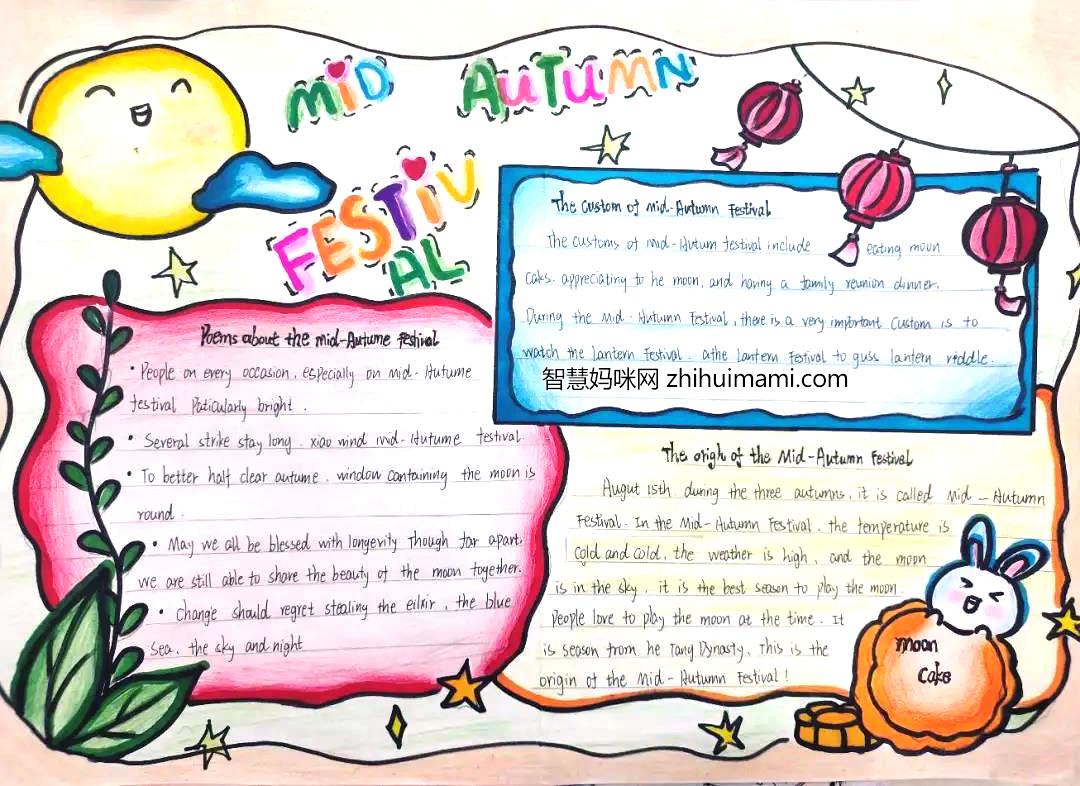 MiD AUTUMN
FESTiV
AL
The Custom of Mid-Autumn Festival
The customs of Mid-Autum festival include eating moon
caks. appreciating to he moon, and having a family reunion dinner.
During the Mid-Autumn Festival, there is a very important Custom is to
watch the lantern Festival. athe lantern Festival to guss lantern riddle.
智慧妈咪网 zhihuimami.com
Poems about the mid-Autume festival
• People on every occasion, especially on mid-Autume
festival Paticularly bright.
• Several strike stay long. xiao mind mid-Autume festival
• To better half clear autume. window containing the moon is
round.
• May we all be blessed with longevity Though far apart.
we are still able to share the beauty of the moon together.
• Chang'e should regret stealing the eilxir, the blue
Sea, the sky and night
The origh of the Mid-Autumn Festival
Augut 15th, during the three autumns, it is called Mid-Autumn
Festival. In the Mid-Autumn Festival, the temperature is
cold and cold, the weather is high, and the moon
is in the sky, it is the best season to play the moon.
People love to play the moon at the time. It
is season from he Tang Dynasty, This is the
origin of the Mid-Autumn Festival!
moon
Cake